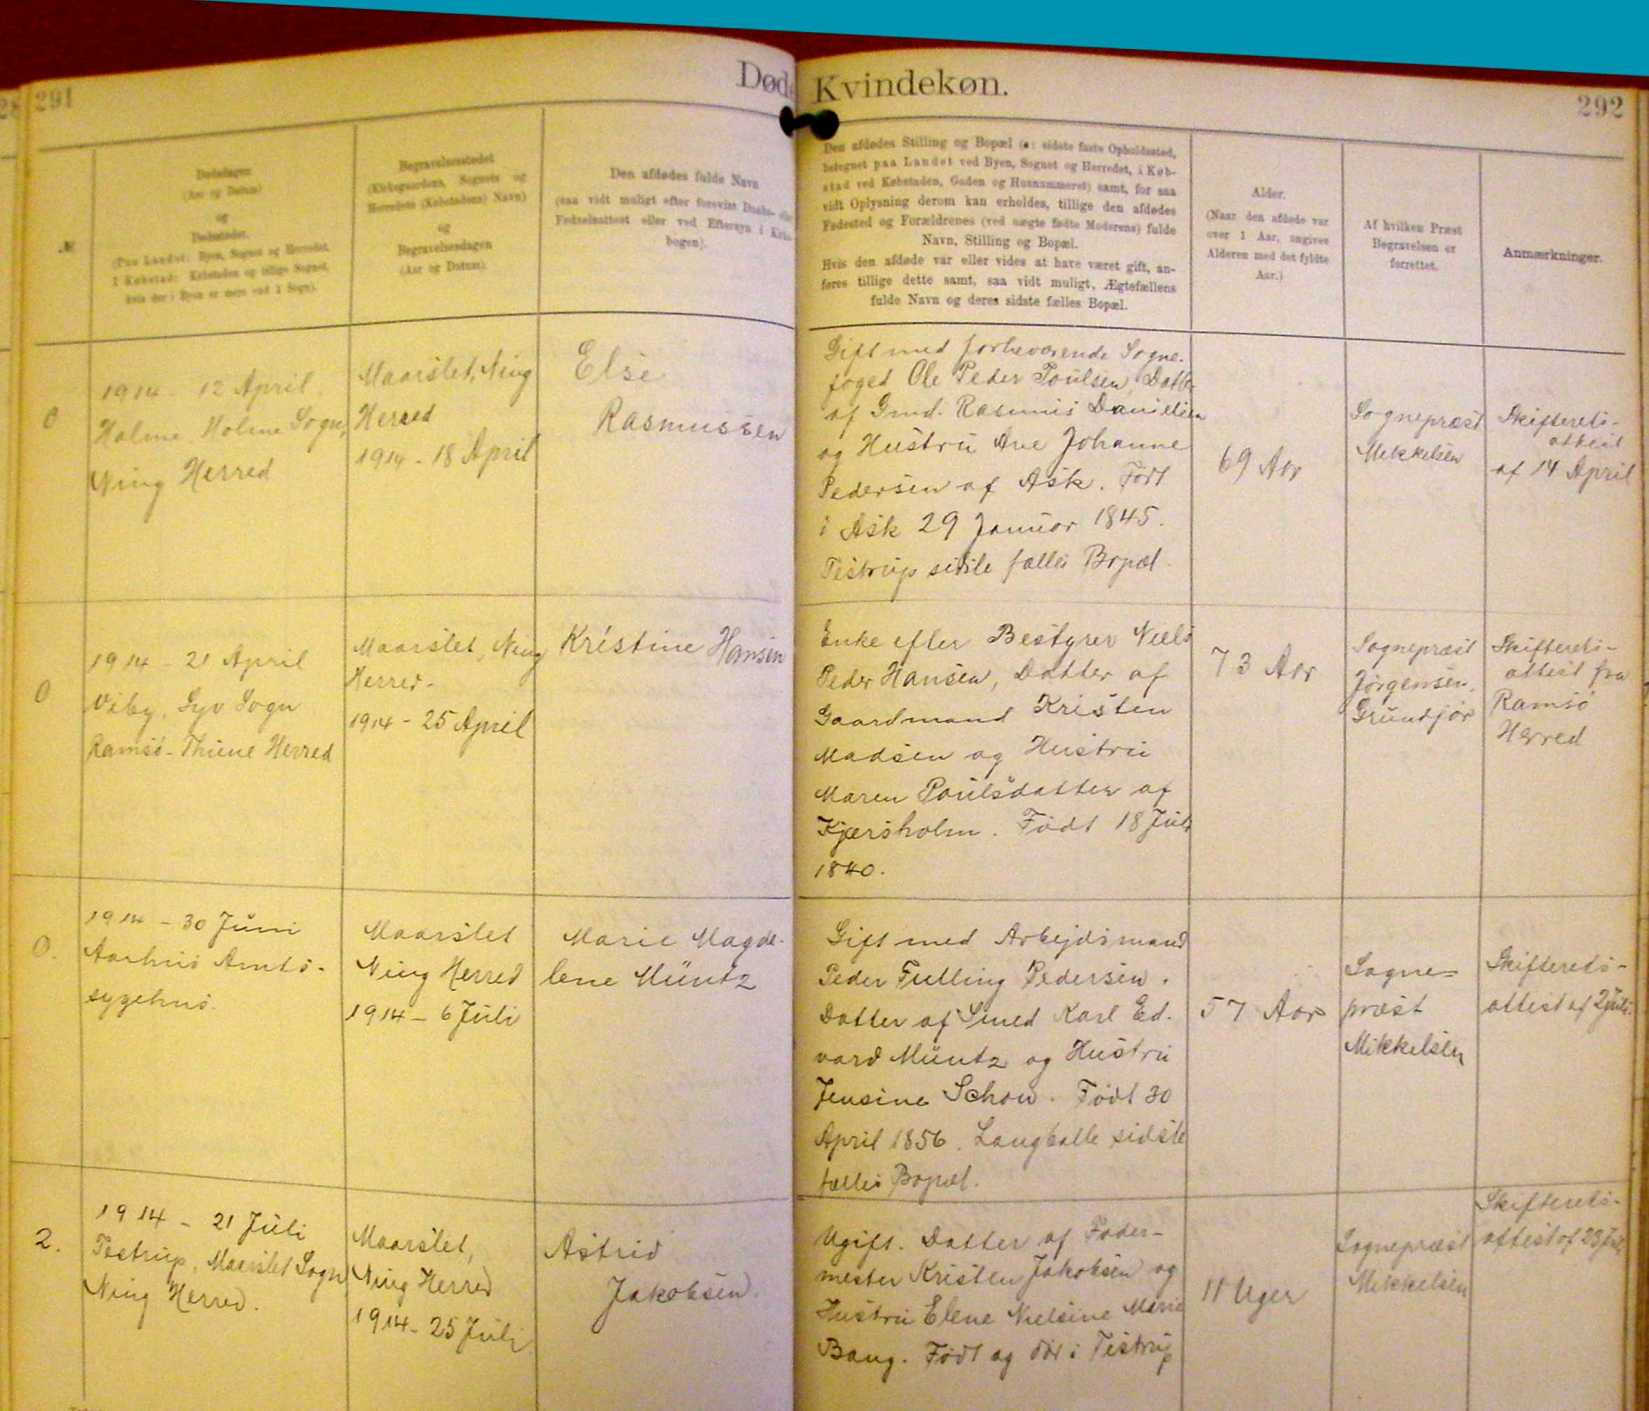 291
Død
Kvindekøn.
292
№
Dødsdagen
(Aar og Datum)
og
Dødsstedet.
(Paa Landet: Byen, Sognet og Herredet,
I Købstad: Købstaden og tillige Sognet,
hvis der i Byen er mere end 1 Sogn).
Begravelsesstedet
(Kirkegaardens, Sognets og
Herredets (Købstadens) Navn)
og
Begravelsesdagen
(Aar og Datum).
Den afdødes fulde Navn
(saa vidt muligt efter forevist Daabs-
Fødselsattest eller ved Eftersyn i Kirke-
bogen).
Den afdødes Stilling og Bopæl (o: sidste faste Opholdssted,
betegnet paa Landet ved Byen, Sognet og Herredet, i Køb-
stad ved Købstaden, Gaden og Husnummeret) samt, for saa
vidt Oplysning derom kan erholdes, tillige den afdødes
Fødested og Forældrenes (ved uægte fødte Moderens) fulde
Navn, Stilling og Bopæl.
Hvis den afdøde var eller vides at have været gift, an-
føres tillige dette samt, saa vidt muligt, Ægtefællens
fulde Navn og deres sidste fælles Bopæl.
Alder.
(Naar den afdøde var
over 1 Aar, angives
Alderen med det fyldte
Aar.)
Af hvilken Præst
Begravelsen er
forrettet.
Anmærkninger.
0
1914 - 12 April
Holme, Holme Sogn,
Ning Herred
Maarslet, Ning
Herred
1914 - 18 April
Else
Rasmussen
Gift med forhenværende Sogne-
foged Ole Peder Poulsen, Datter
af Gmd. Rasmus Danielsen
og Hustru Ane Johanne
Pedersen af Ask. Født
i Ask 29 Januar 1845.
Testrup sidste fælles Bopæl.
69 Aar
Sognepræst
Mikkelsen
Skifterets-
attest
af 14 April
0
1914 - 21 April
Viby, Syv Sogn
Ramsø-Thune Herred
Maarslet, Ning
Herred -
1914 - 25 April
Kristine Hansen
Enke efter Bestyrer Niels
Peder Hansen, Datter af
Gaardmand Kristen
Madsen og Hustru
Maren Poulsdatter af
Kjærsholm. Født 18 Juli
1840.
73 Aar
Sognepræst
Jørgensen,
Grundfør
Skifterets-
attest fra
Ramsø
Herred
0.
1914 - 30 Juni
Aarhus Amts-
sygehus.
Maarslet
Ning Herred
1914 - 6 Juli
Marie Magda-
lene Müntz
Gift med Arbejdsmand
Peder Fulling Pedersen.
Datter af Smed Karl Ed-
vard Müntz og Hustru
Jensine Schou. Født 30
April 1856. Langballe sidste
fælles Bopæl.
57 Aar
Sogne=
præst
Mikkelsen
Skifterets-
attest af 2 Juli.
2.
1914 - 21 Juli
Testrup, Maarslet Sogn
Ning Herred.
Maarslet,
Ning Herred
1914 - 25 Juli
Astrid
Jakobsen.
Ugift. Datter af Foder-
mester Kristen Jakobsen og
Hustru Elene Nielsine Marie
Bang. Født og død i Testrup
11 Uger
Sognepræst
Mikkelsen
Skifterets-
attest af 23 Juli